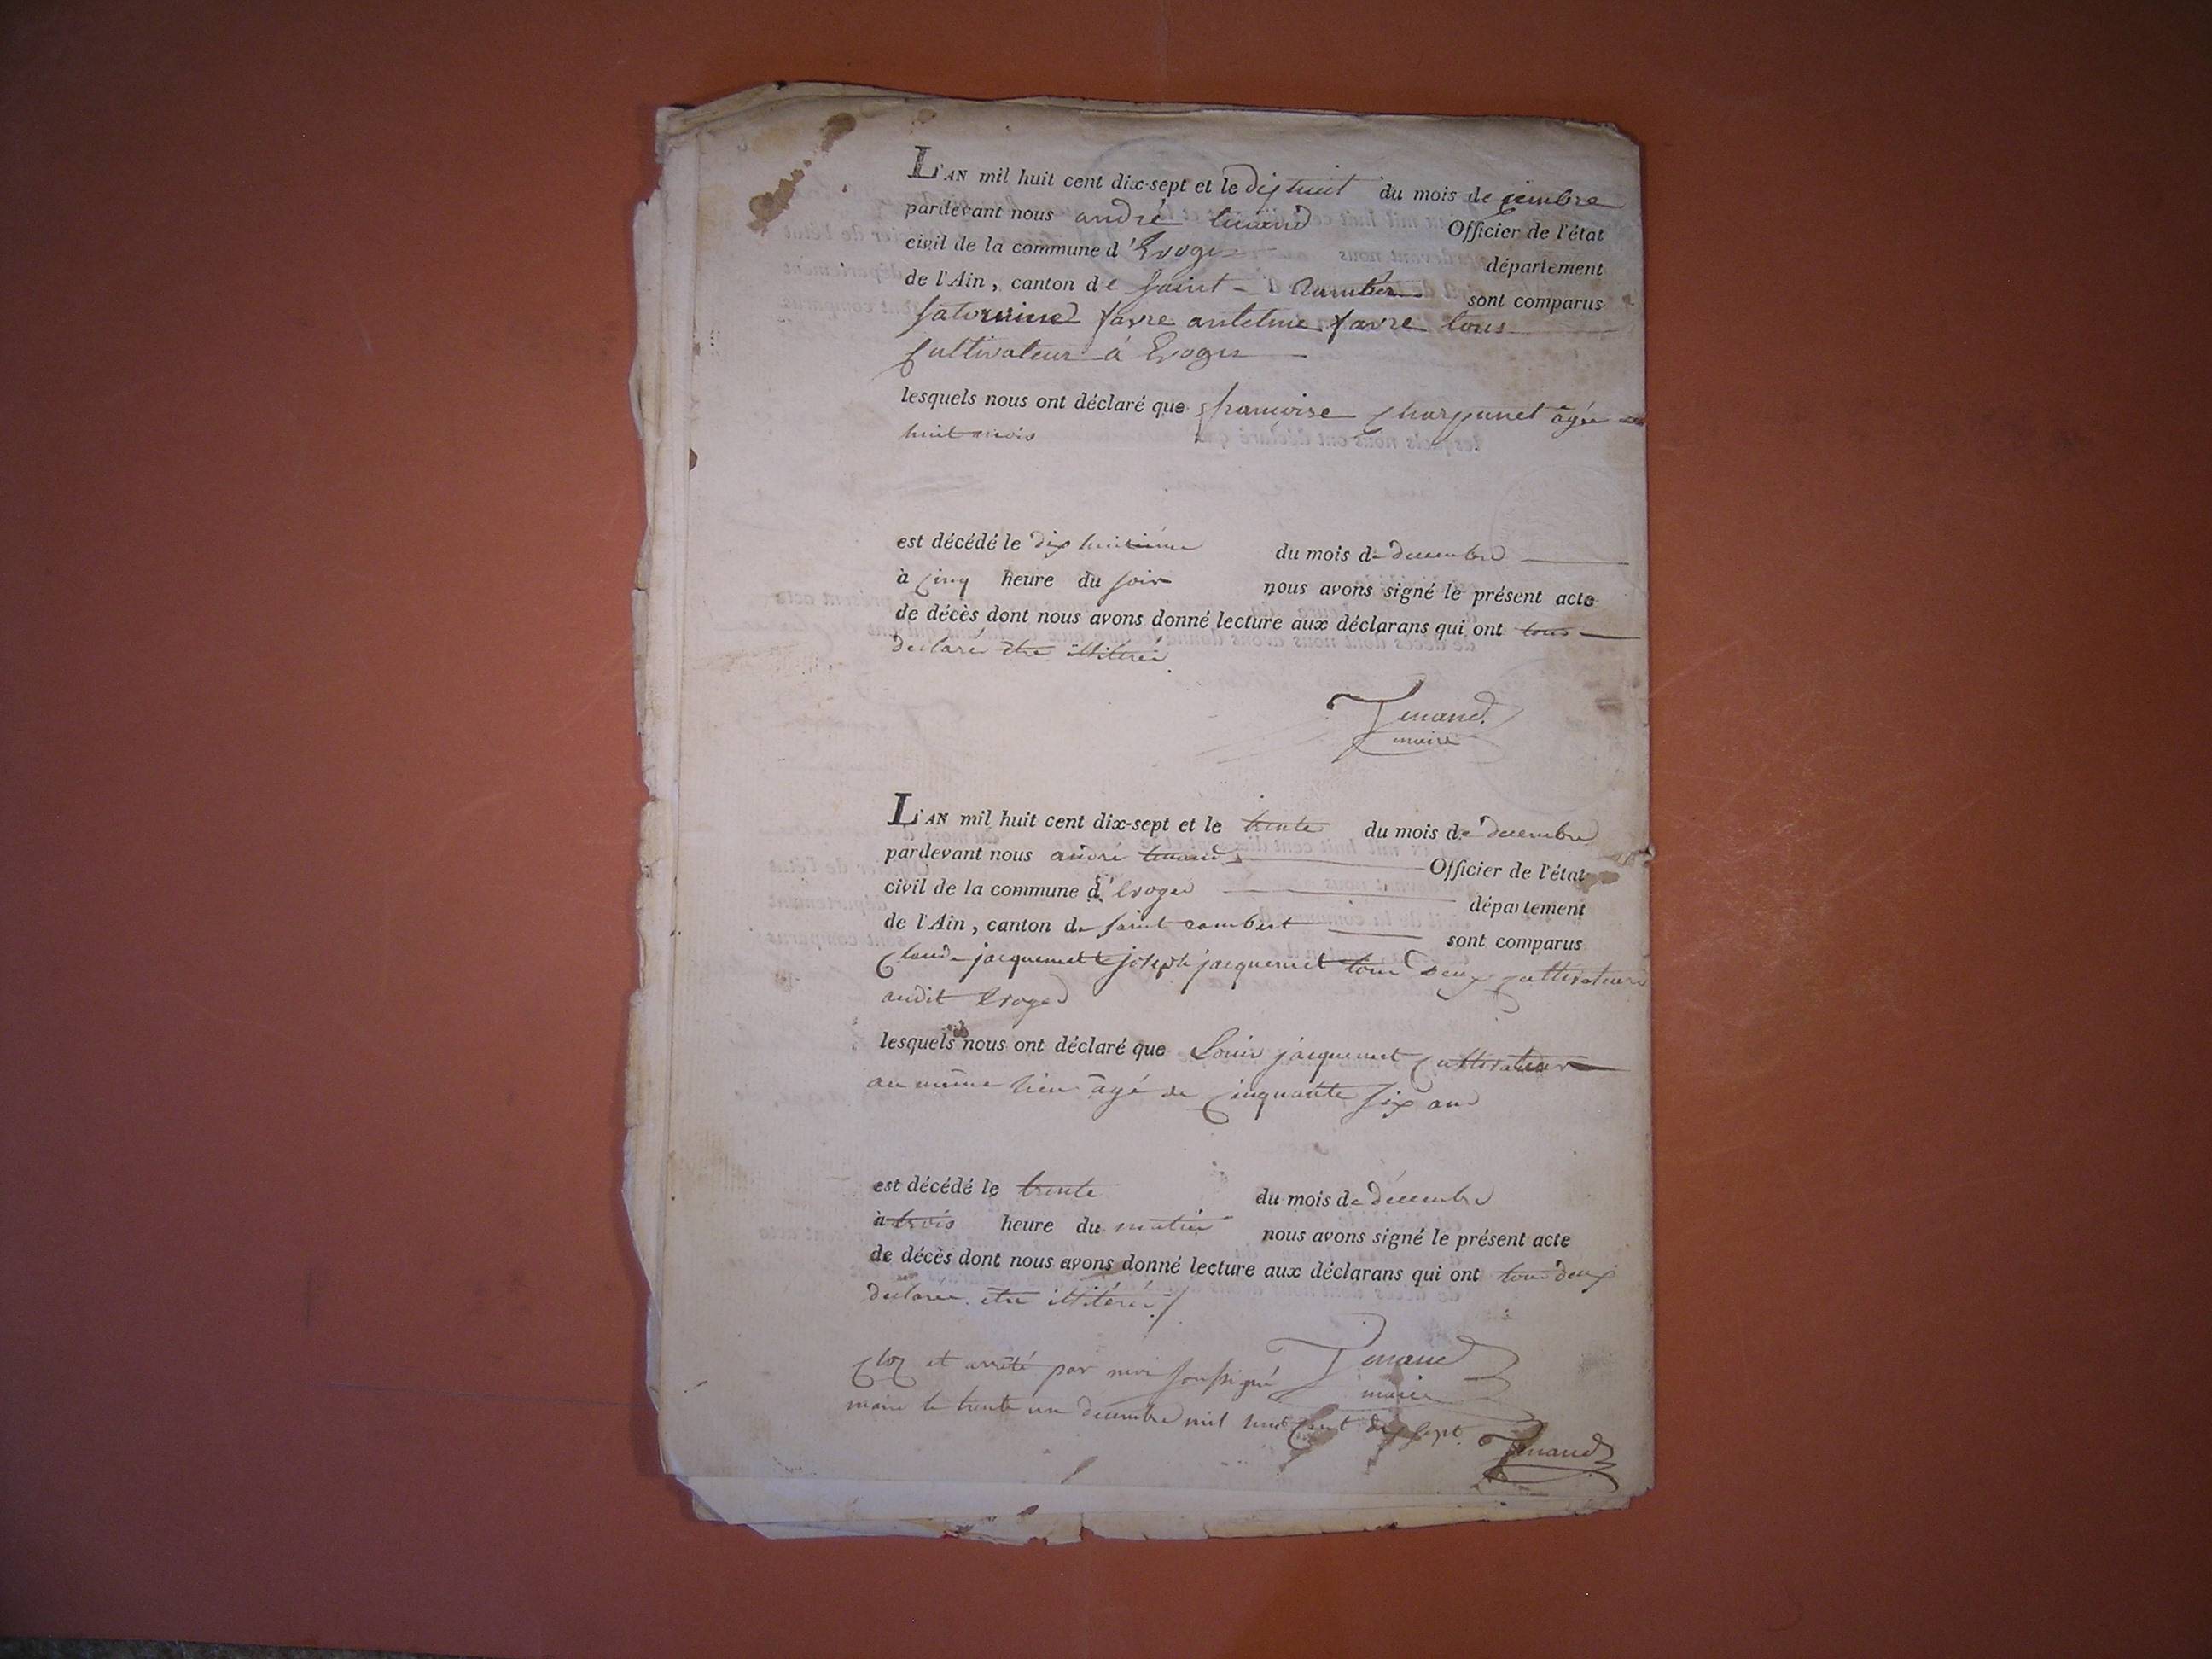 L'AN mil huit cent dix-sept et le dix huit du mois de
pardevant nous andré tenand Officier de l'état
civil de la commune d'Evoges département
de l'Ain, canton de saint-Rambert sont comparus
saturnine favre antelme favre tous
Cultivateur à Evoges
lesquels nous ont déclaré que françoise âgée
huit mois
est décédé le dix huitieme du mois de decembre
à cinq heure du soir nous avons signé le présent acte
de décès dont nous avons donné lecture aux déclarans qui ont tous
declaré etre illiteré
Tenand
maire
L'AN mil huit cent dix-sept et le trente du mois de decembre
pardevant nous andré tenand Officier de l'état
civil de la commune d'Evoges département
de l'Ain, canton de saint rambert sont comparus
Claude jacquemet joseph jacquemet tous deux cultivateurs
audit Evoges
lesquels nous ont déclaré que Louis jacquemet cultivateur
au même lieu âgé de Cinquante six ans
est décédé le trente du mois de décembre
à trois heure du matin nous avons signé le présent acte
de décès dont nous avons donné lecture aux déclarans qui ont tous deux
declaré etre illiteré
Tenand
maire
Clos et arrêté par moi soussigné
maire le trente un decembre mil huit Cent dix sept.
Tenand